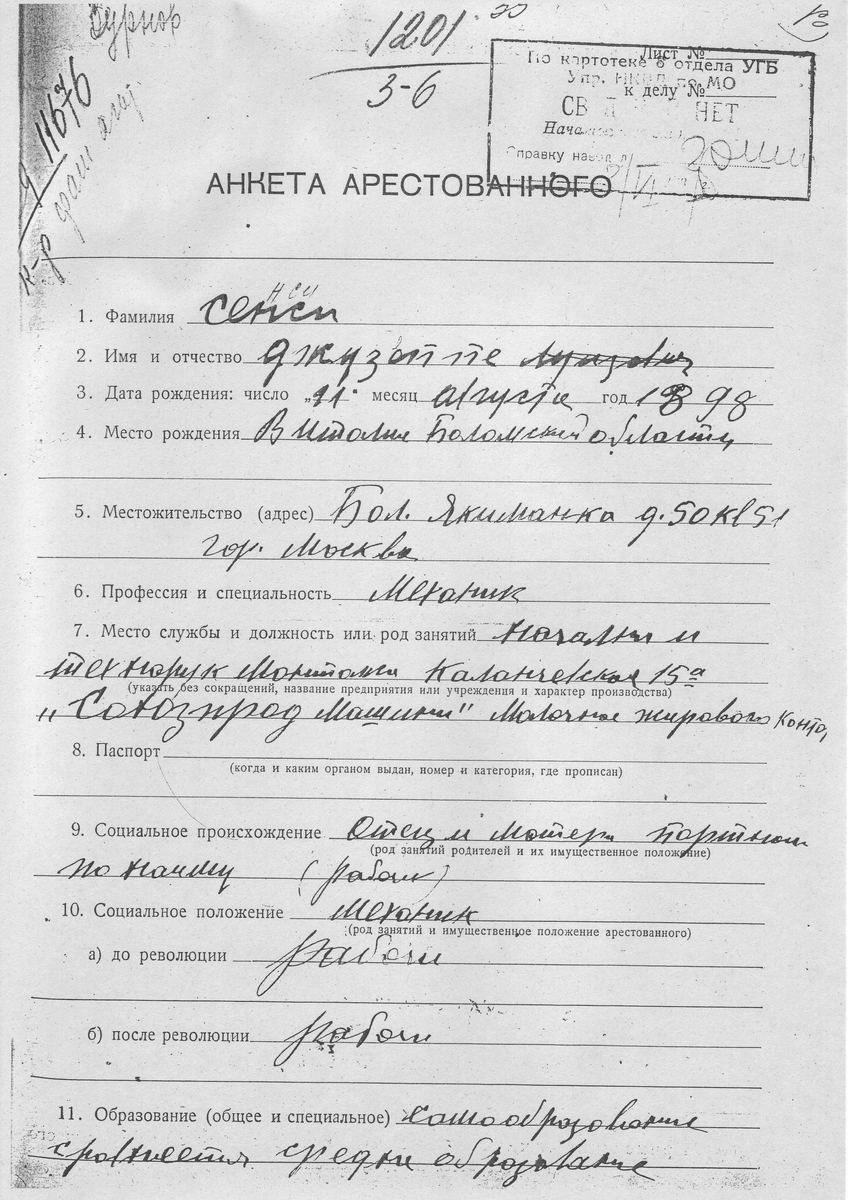 1201
3-6
Лист №
По картотеке 6 отдела УГБ
Упр. НКВД по МО
к делу №
СВ НЕТ
Справку навел
АНКЕТА АРЕСТОВАННОГО
нси
1. Фамилия Сенси
2. Имя и отчество Джузеппе
3. Дата рождения: число „11" месяц августа год 1898
4. Место рождения В Италии Боломской области
5. Местожительство (адрес) Бол. Якиманка д. 50 кв 51
гор. Москва
6. Профессия и специальность Механик
7. Место службы и должность или род занятий
технорук Монтажа Каланчевская 15а
(указать без сокращений, название предприятия или учреждения и характер производства)
„Союзпрод Машины" Молочное жирового Конто,
8. Паспорт
(когда и каким органом выдан, номер и категория, где прописан)
9. Социальное происхождение Отец и матери портном
(род занятий родителей и их имущественное положение)
по найму (рабочи)
10. Социальное положение Механик
(род занятий и имущественное положение арестованного)
а) до революции рабочи
б) после революции рабочи
11. Образование (общее и специальное) самообразование
сравнеется средни образование